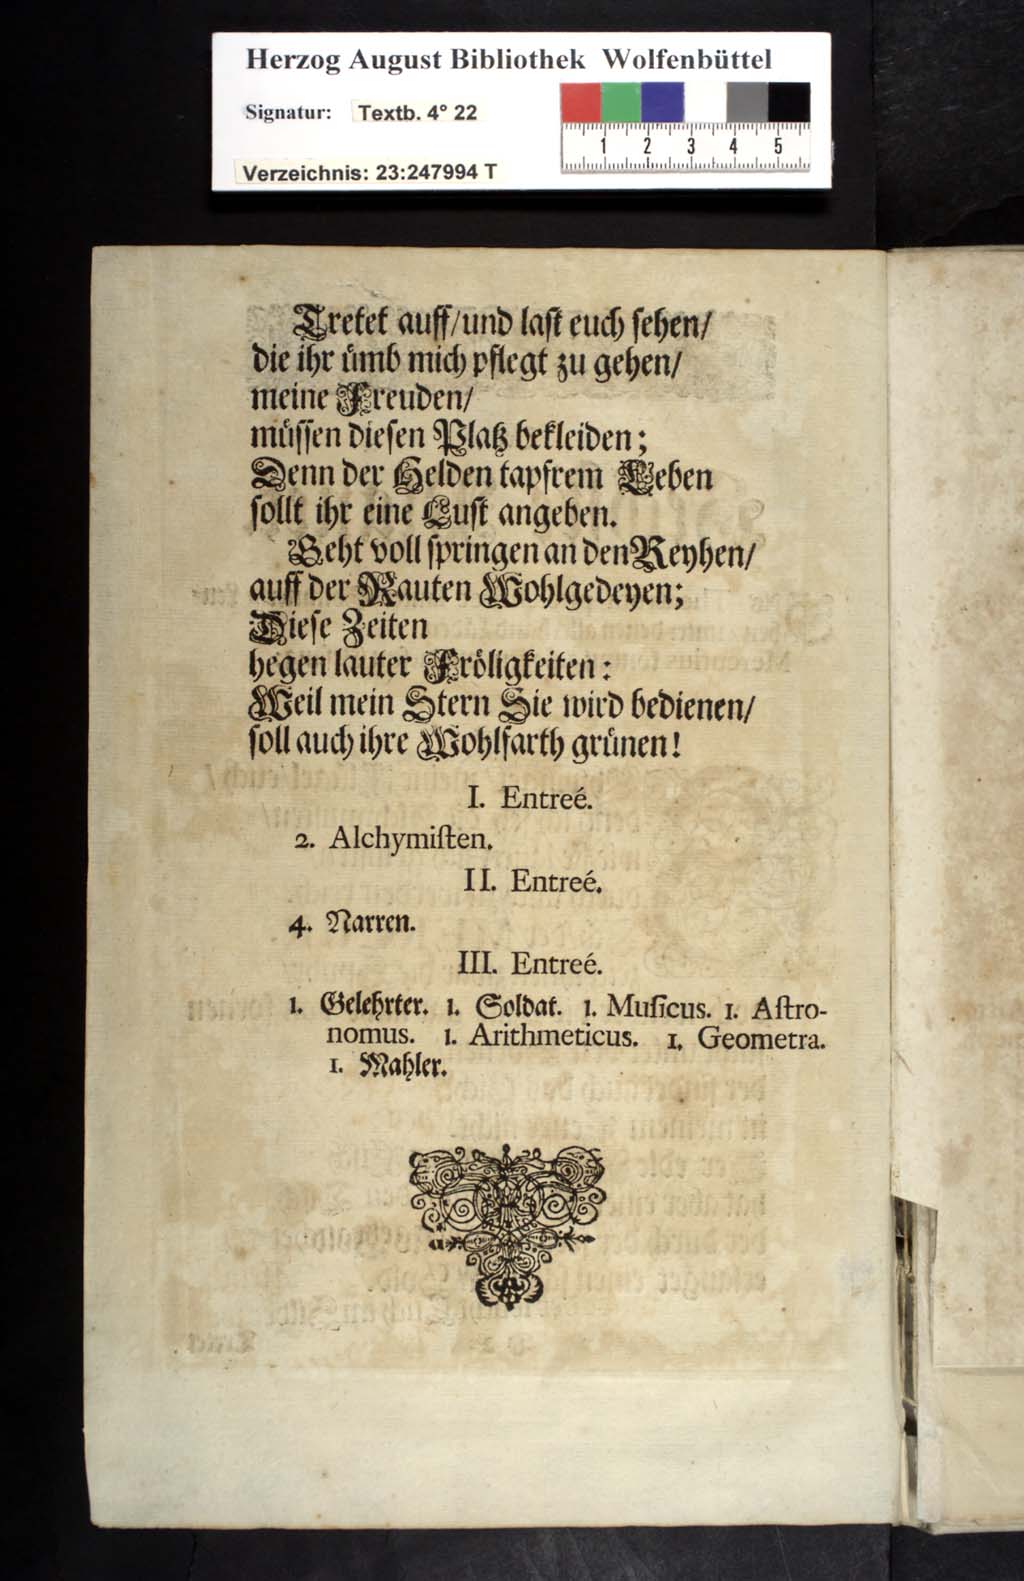 Herzog August Bibliothek Wolfenbüttel
Signatur: Textb. 4° 22
1 2 3 4 5
Verzeichnis: 23:247994 T
Tretet auff/und last euch sehen/
die ihr ümb mich pflegt zu gehen/
meine Freuden/
müssen diesen Platz bekleiden;
Denn der Helden tapfrem Leben
sollt ihr eine Lust angeben.
Geht voll springen an den Reyhen/
auff der Rauten Wohlgedeyen;
Diese Zeiten
hegen lauter Fröligkeiten:
Weil mein Stern Sie wird bedienen/
soll auch ihre Wohlfarth grünen!
I. Entreé.
2. Alchymisten.
II. Entreé.
4. Narren.
III. Entreé.
1. Gelehrter. 1. Soldat. 1. Musicus. 1. Astro-
nomus. 1. Arithmeticus. 1. Geometra.
1. Mahler.